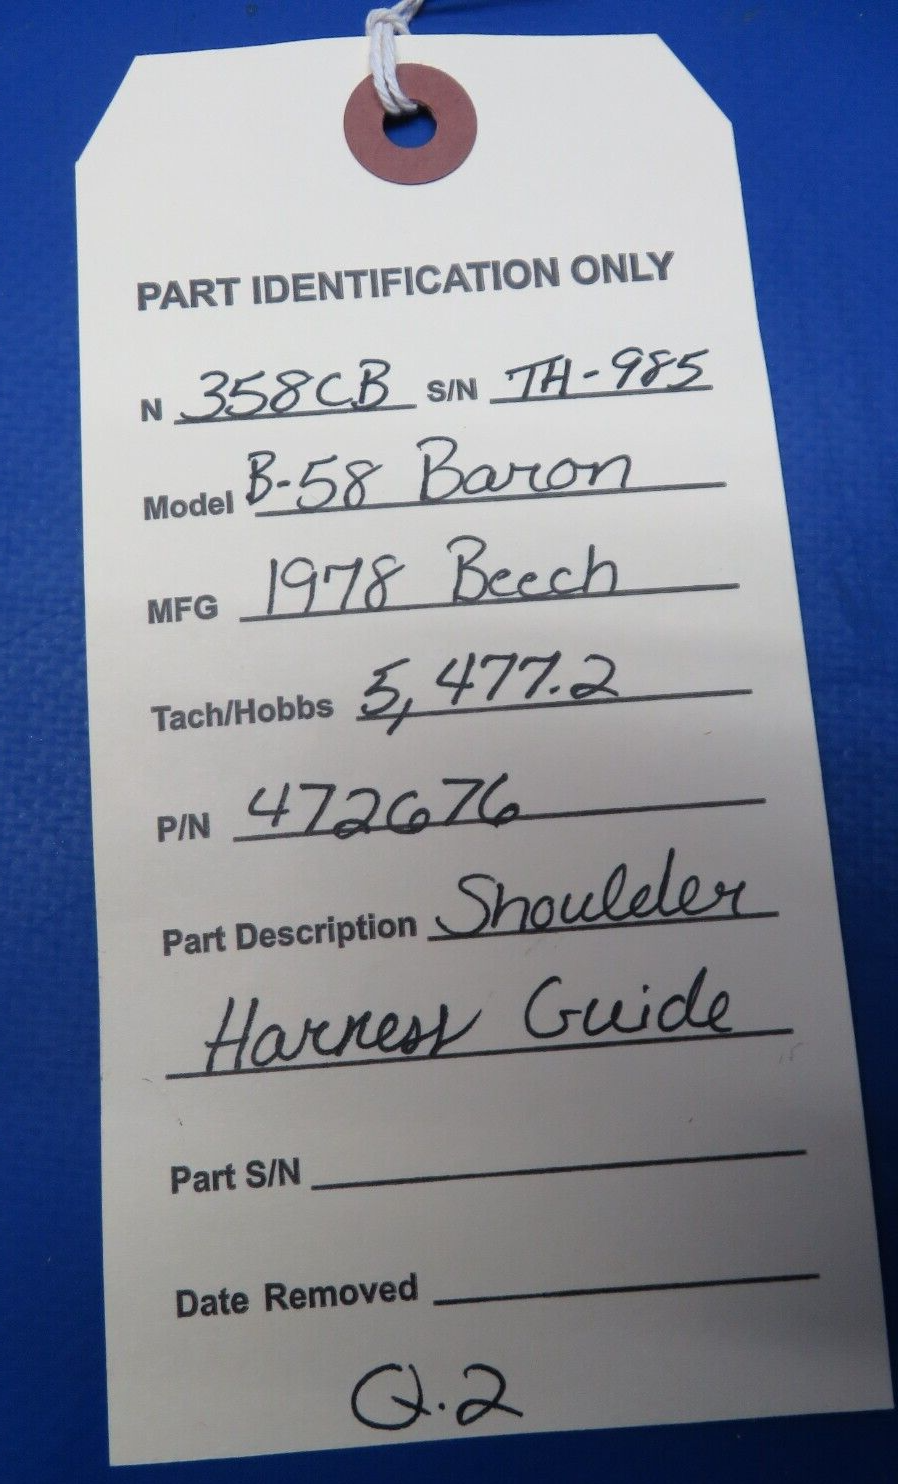 PART IDENTIFICATION ONLY
N 358CB S/N TH-985
Model B-58 Baron
MFG 1978 Beech
Tach/Hobbs 5,477.2
P/N 472676
Part Description Shoulder
Harness Guide
Part S/N
Date Removed
Q.2